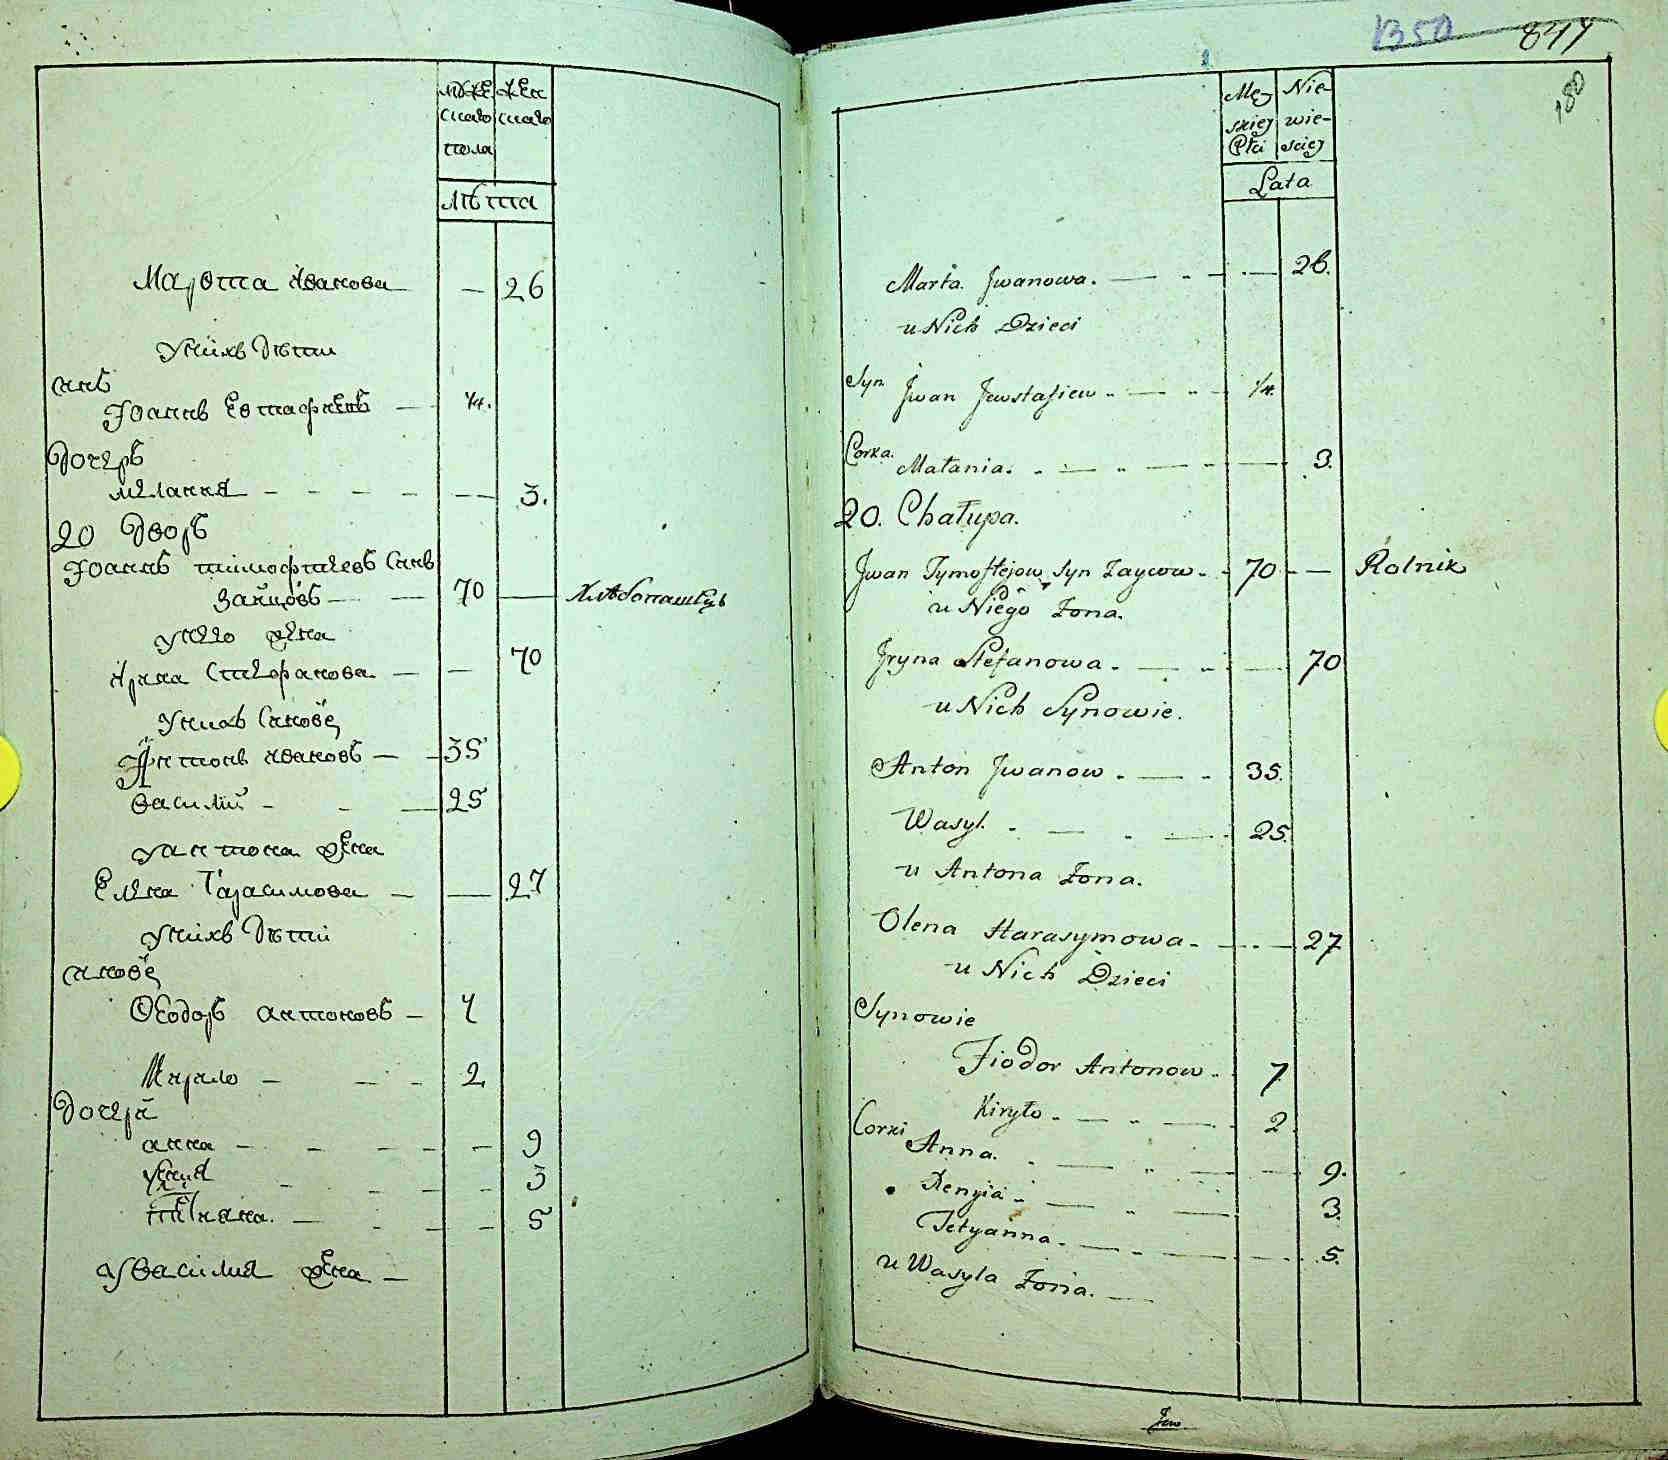 мужеска пола
женска
лѣта
Марѳта Иванова — 26
У нихъ дѣти
Снъ
Іоаннъ Евстафіевъ — 14.
Дочерь
меланія — 3.
20 Дворъ
Іоаннъ тимофтеевъ Снъ
Зайцовъ — 70 — Хлѣбопашецъ
у него жена
Ирина Стефанова — 70
У нихъ Снове
Антонъ ивановъ — 35
василій — 25
у антона жена
Елена Гарасимова — 27
У нихъ дѣти
снове
Ѳеодоръ антоновъ — 7
Кирило — 2
Дочери
анна — 9
Татіана. — 5
у василия жена —
1350 844
180
Męzskiej Płci
Niewiesciej
Lata
Marta Jwanowa. — 26.
u Nich Dzieci
Syn Jwan Jewstafiew — 14.
Corka. Małania. — 3.
20. Chałupa.
Jwan Tymoftejow Syn Zaycow — 70 — Rolnik
u Niego Zona.
Jryna Stefanowa — 70
u Nich Synowie.
Anton Jwanow — 35.
Wasyl. — 25.
u Antona Zona.
Olena Harasymowa — 27
u Nich Dzieci
Synowie
Fiodor Antonow — 7
Kiryło — 2.
Corki
Anna. — 9.
Xenyia — 3.
Tetyanna — 5.
u Wasyla Zona. —
Jew